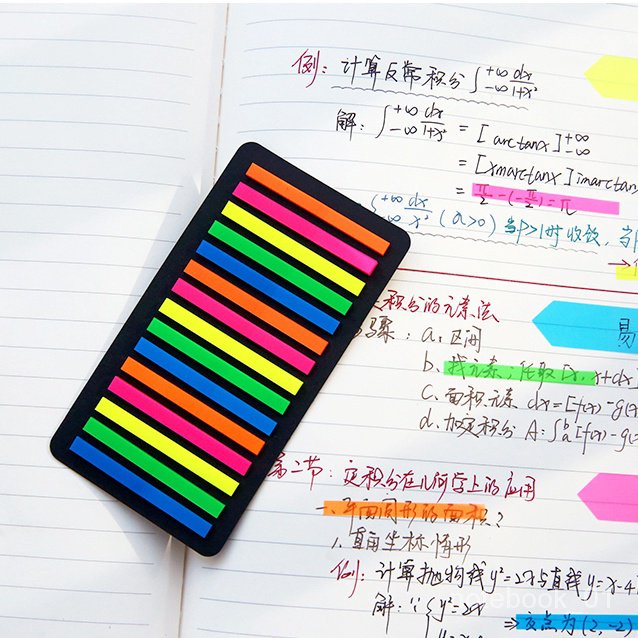 例：计算反常积分∫+∞ -∞ dx/1+x²
解：∫+∞ -∞ dx/1+x² = [arctanx]+∞ -∞
= π/2 - (-π/2) = π
+∞ dx/x² (a>0) 当P>1时收敛，当
积分的元素法
骤：a. 区间
b. 找元素；任取[x, x+dx]
易
c. 面积元素 dx=[f(x)-g(x
d. 加定积分 A:∫b a [f(x)-g(
第二节：定积分在几何学上的应用
一、平面图形的面积
1. 直角坐标情形
例：计算抛物线y²=2x与直线y=x-4
解：∵{y²=2x
⇒交点为(2,-2)
notebook_01